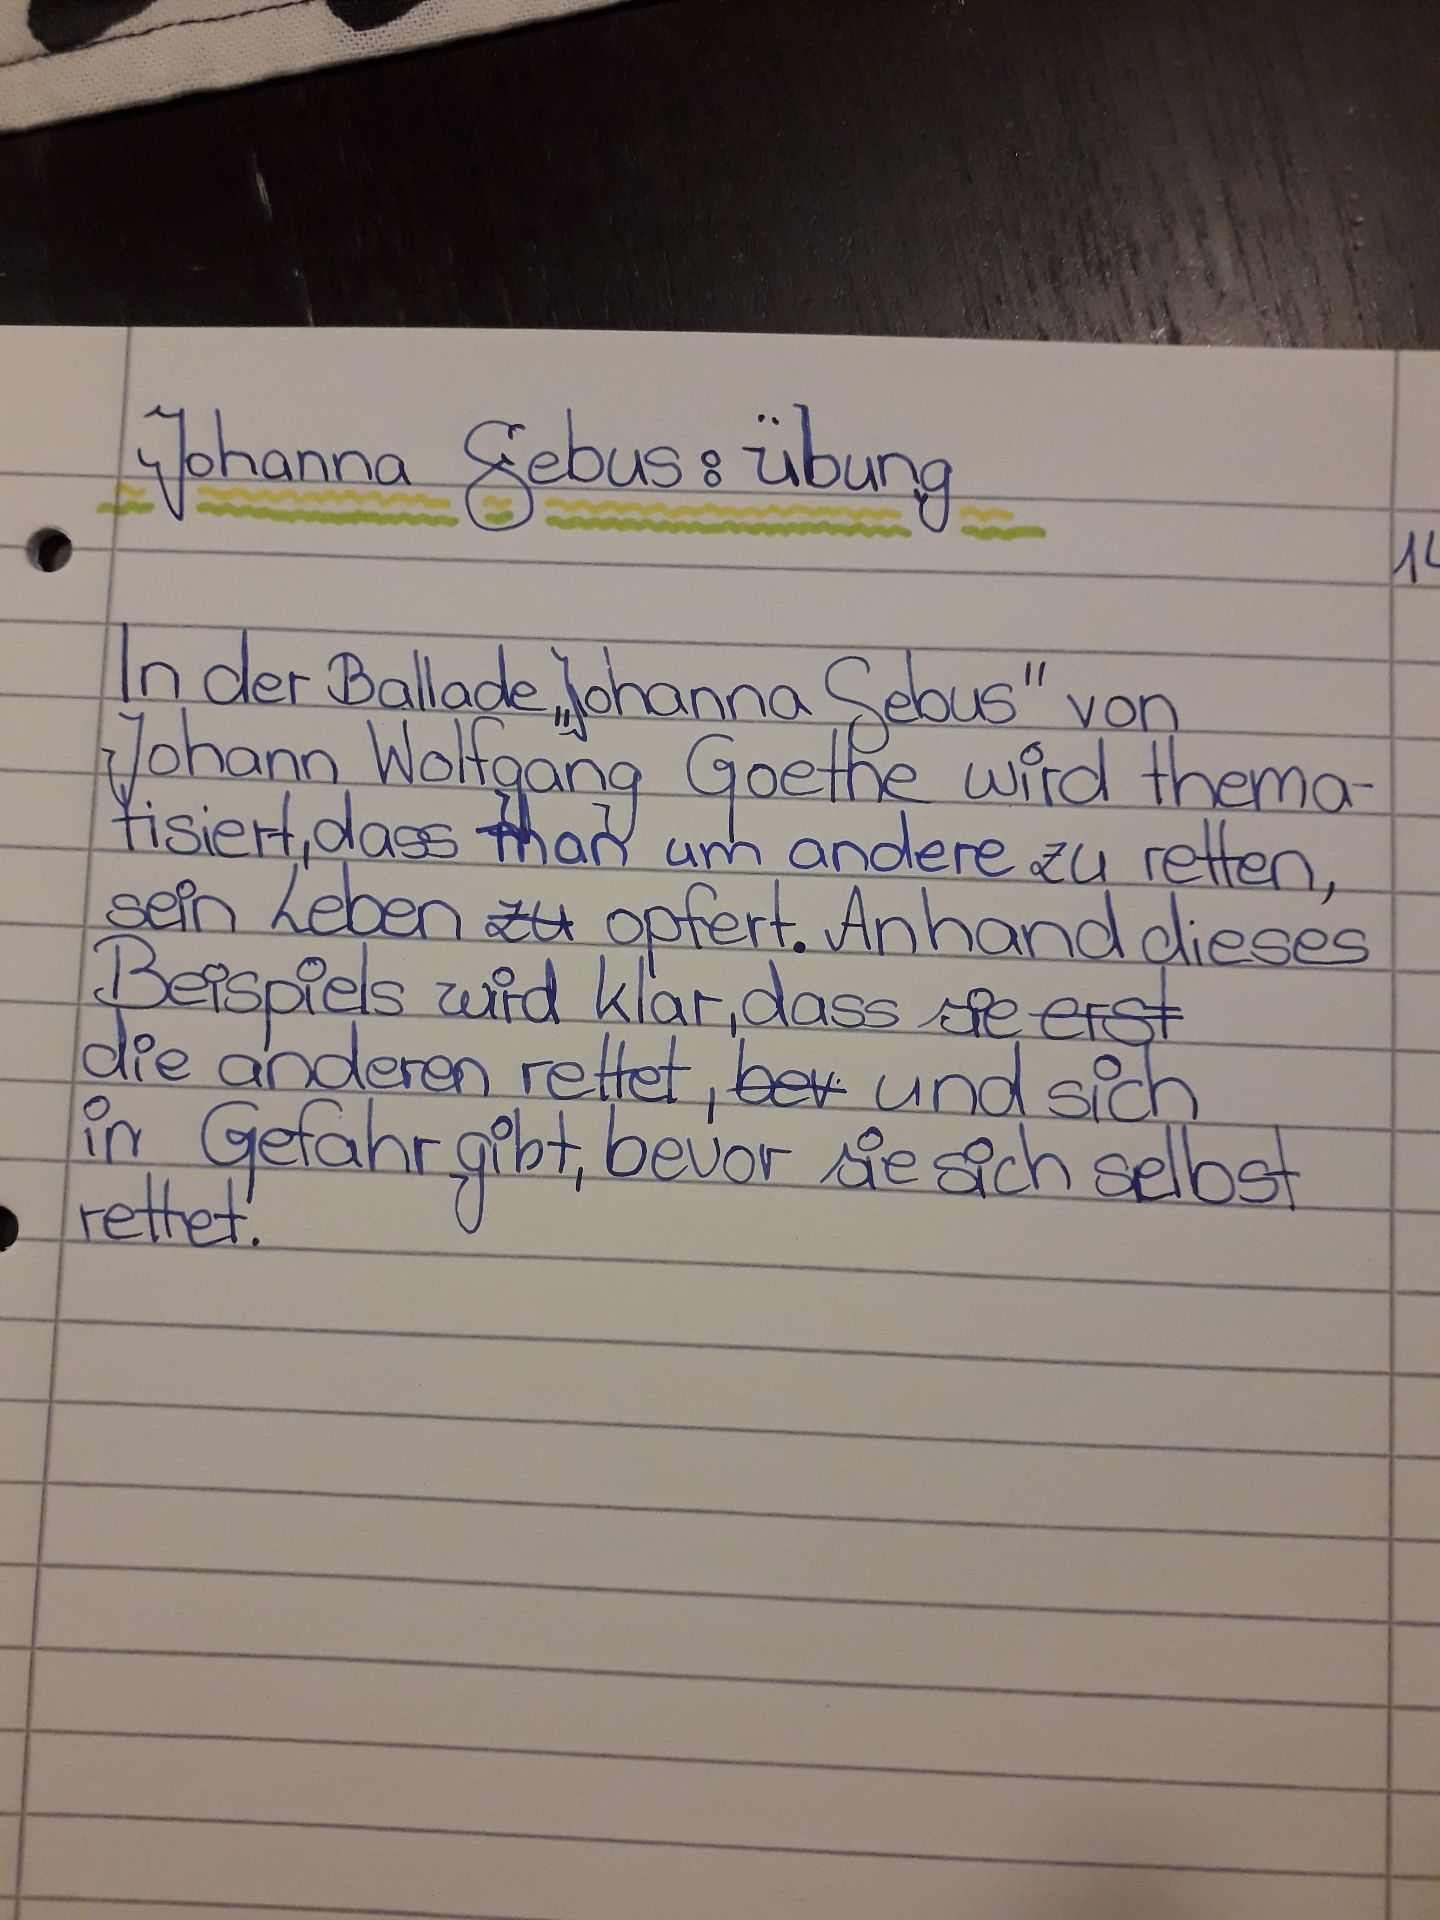 Johanna Sebus: übung
14
In der Ballade „Johanna Sebus" von
Johann Wolfgang Goethe wird thema-
tisiert, dass man um andere zu retten,
sein Leben zu opfert. Anhand dieses
Beispiels wird klar, dass sie erst
die anderen rettet, bev. und sich
in Gefahr gibt, bevor sie sich selbst
rettet.